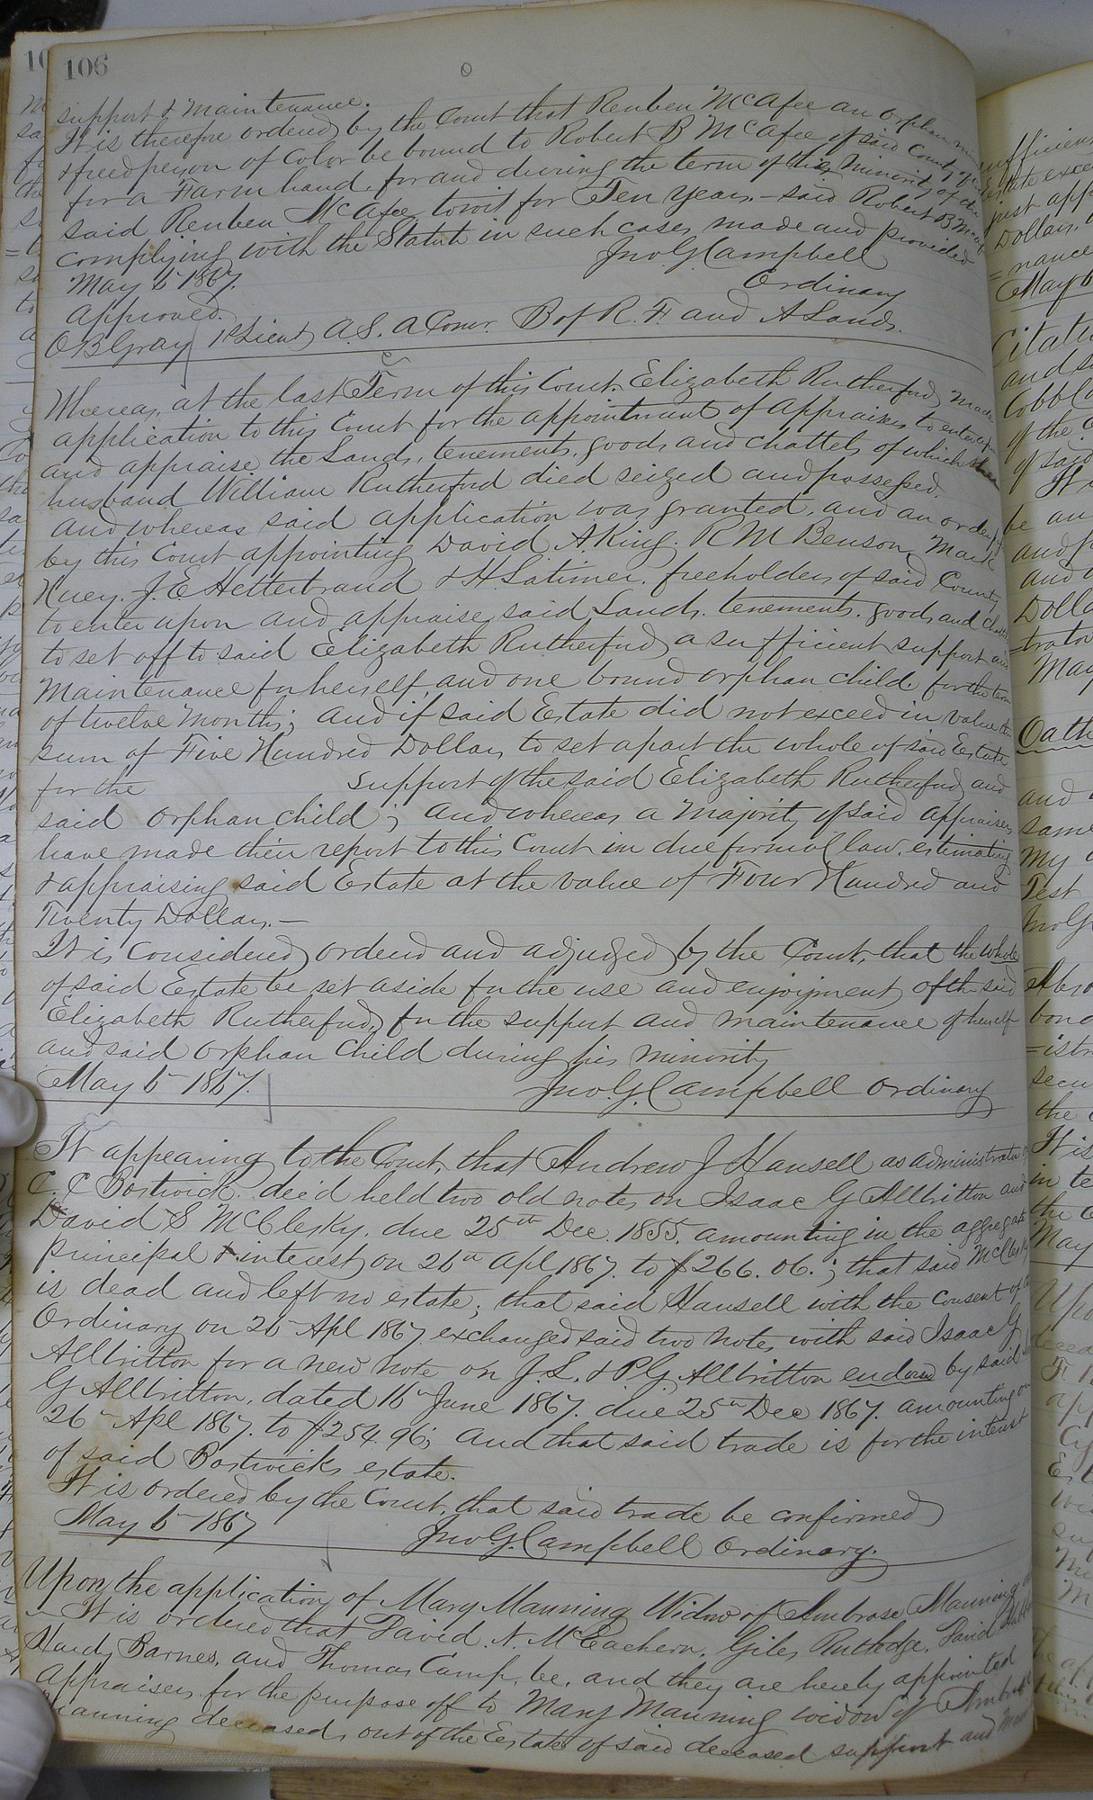 106
support & Maintenance.
It is therefore ordered by the Court that Reuben McAfee an Orphan
& freed person of Color be bound to Robert B McAfee of said County
for a Farm hand, for and during the term of the Minority of the
said Reuben McAfee, towit for Ten years, - said Robert B McAfee
complying with the Statute in such cases made and provided
May 6 1867. Jno G Campbell
Ordinary
Approved.
O B Gray 1st Lieut A. S. A Comr. B of R. F. and A Lands.
Whereas, at the last Term of this Court, Elizabeth Rutherford made
application to this Court for the appointment of appraisers to enter upon
and appraise the Lands, tenements, goods and chattels of which
husband William Rutherford died seized and possessed.
And whereas said application was granted, and an order
by this Court appointing David A. King. R M Benson, Mark
Huey. J. E. Hettebrand & H Latimer, freeholders of said County
to enter upon and appraise said Lands, tenements, goods and chattels
to set off to said Elizabeth Rutherford, a sufficient support and
Maintenance for herself and one bound orphan child, for the term
of twelve Months; and if said Estate did not exceed in value the
sum of Five Hundred Dollars, to set apart the whole of said Estate
for the support of the said Elizabeth Rutherford and
said orphan child; and whereas a Majority of said appraisers
have made their report to this Court in due form of law, estimating
& appraising said Estate at the value of Four Hundred and
Twenty Dollars. -
It is Considered, ordered and adjudged by the Court, that the whole
of said Estate be set aside for the use and enjoyment of the said
Elizabeth Rutherford, for the support and maintenance of herself
and said orphan Child during his minority
May 6 1867. Jno. G. Campbell Ordinary
It appearing to the Court, that Andrew J Hansell as administrator
C. C Bostwick, dec'd held two old notes on Isaac G Allbritton and
David S McClesky, due 25th Dec. 1855. amounting in the aggregate
principal & interest, on 26th Apl 1867. to $266.06.; that said McClesky
is dead and left no estate; that said Hansell with the Consent of
Ordinary on 26 Apl 1867 exchanged said two Notes with said Isaac G
Allbritton for a new Note on J. L. & P G Allbritton endorsed by said
G Allbritton, dated 1st June 1867. due 25th Dec 1867. amounting on
26 Apl 1867. to $254.96; and that said trade is for the interest
of said Bostwick's estate.
It is ordered by the Court, that said trade be confirmed
May 6 1867 Jno G. Campbell Ordinary.
Upon the application of Mary Manning Widow of Ambrose Manning
It is ordered that David. N. McEachern, Giles Rutledge, David
Hardy Barnes, and Thomas Camp, be, and they are hereby appointed
Appraisers for the purpose off to Mary Manning widow of Ambrose
Manning deceased, out of the Estate of said deceased support and